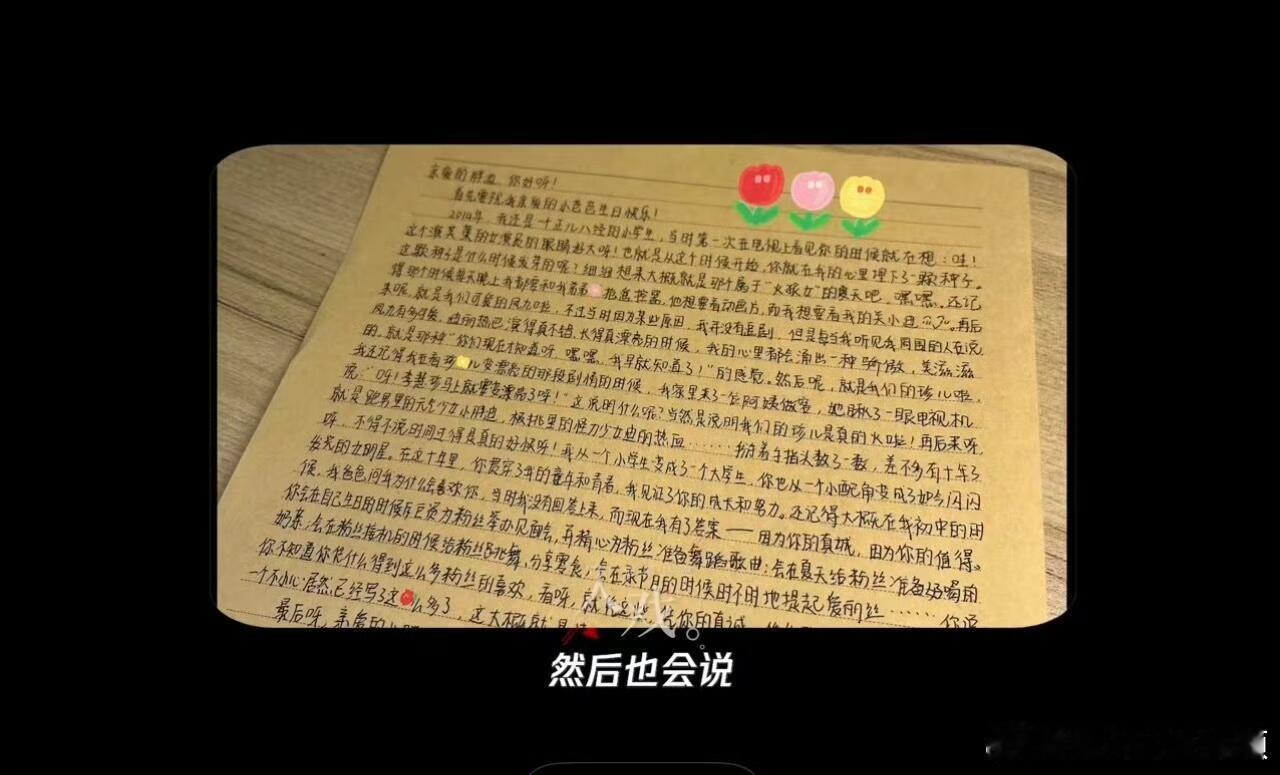 亲爱的胖迪，你好呀！
首先要祝我亲爱的小芭芭生日快乐！
2014年，我还是一个正儿八经的小学生，当时第一次在电视上看见你的时候就在想：哇！
这个演芙蕖的女演员的眼睛好大呀！也就是从这个时候开始，你就在我的心里埋下了一颗种子。
这颗种子是什么时候发芽的呢？细细想来大概就是那个属于“火狼女”的寒天吧，嘿嘿，还记
得那个时候每天晚上我都要和我弟弟抢遥控器，他想要看动画片，而我想要看我的关小迪。再后
来呢，就是我们可爱的凤九啦，不过当时因为某些原因，我并没有追剧，但是每当我听见我周围的人在说
凤九有多可爱、迪丽热巴演得真不错、长得真漂亮的时候，我的心里都会涌出一种骄傲，美滋滋
的，就是那种“你们现在才知道呀，嘿嘿，我早就知道了！”的感觉。然后呢，就是我们的慧儿啦，
我还记得我在看 儿变漂亮的那段剧情的时候，我家里来了一位阿姨做客，她瞅了一眼电视机
说：“呀！李慧珍马上就要变漂亮了呀！”这说明什么呢？当然是说明我们的珍儿是真的火啦！再后来呀，
就是跑男里的元气少女小胖迪，极挑里的怪力少女迪丽热血……掰着手指头数了一数，差不多有十年了
呀，不得不说时间过得是真的好快呀！我从一个小学生变成了一个大学生，你也从一个小配角变成了如今闪闪
发光的女明星。在这十年里，你贯穿了我的童年和青春，我见证了你的成长和努力。还记得大概在我初中的时
候，我爸爸问我为什么会喜欢你，当时我没有回答上来，而现在我有了答案——因为你的真诚，因为你的值得。
你会在自己生日的时候斥巨资为粉丝举办见面会，并精心为粉丝准备舞蹈歌曲；会在夏天给粉丝准备好喝的
奶茶，会在粉丝接机的时候给粉丝跳舞、分享零食，会在录节目的时候时不时地提起爱丽丝……你说
你不知道你凭什么得到这么多粉丝的喜欢，看呀，就凭这些，凭你的真诚
一个不小心居然已经写了这么多了，这大概就是
最后呀，亲爱的小胖
然后也会说